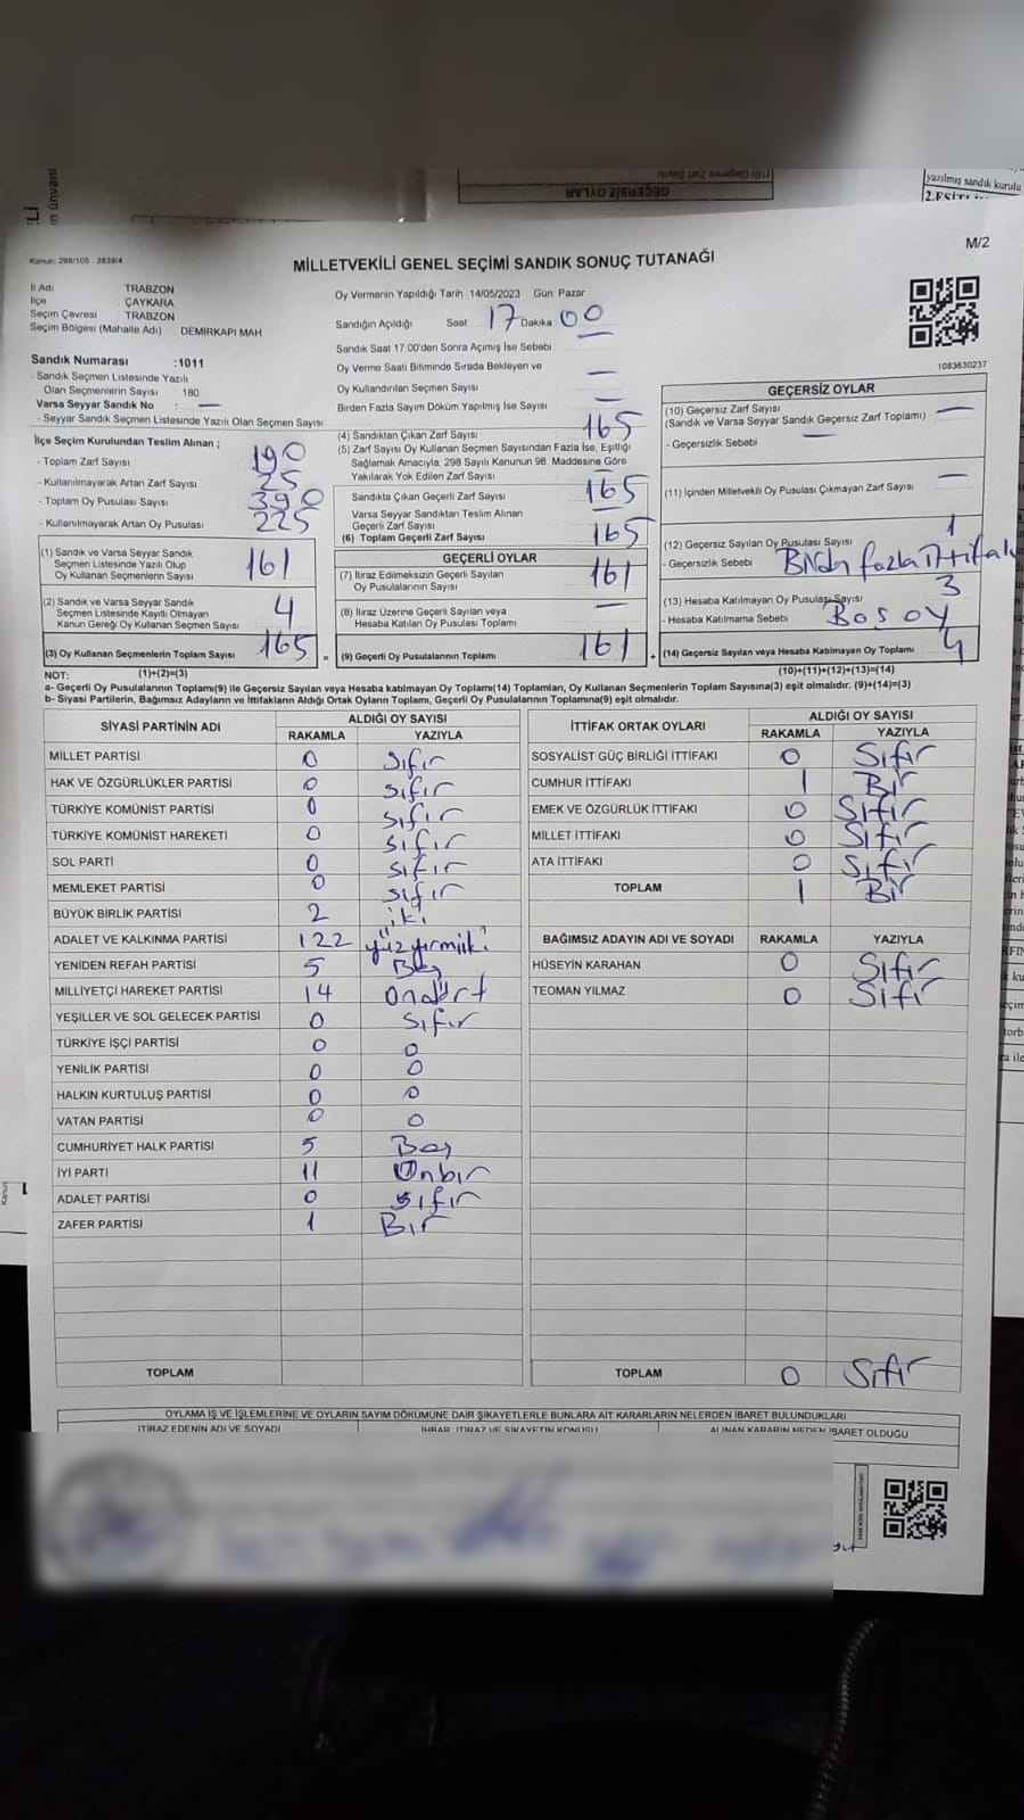 GEÇERSİZ OYLAR
yazılmış sandık kurulu
M/2
MİLLETVEKİLİ GENEL SEÇİMİ SANDIK SONUÇ TUTANAĞI
İl Adı TRABZON
İlçe ÇAYKARA
Seçim Çevresi TRABZON
Seçim Bölgesi (Mahalle Adı) DEMİRKAPI MAH
Oy Vermenin Yapıldığı Tarih 14/05/2023 Gün Pazar
Sandığın Açıldığı Saat 17 Dakika 00
Sandık Saat 17.00'den Sonra Açılmış İse Sebebi
Oy Verme Saati Bitiminde Sırada Bekleyen ve —
Oy Kullandırılan Seçmen Sayısı
Birden Fazla Sayım Döküm Yapılmış İse Sayısı —
1083630237
Sandık Numarası :1011
- Sandık Seçmen Listesinde Yazılı
Olan Seçmenlerin Sayısı 180
Varsa Seyyar Sandık No : —
- Seyyar Sandık Seçmen Listesinde Yazılı Olan Seçmen Sayısı
İlçe Seçim Kurulundan Teslim Alınan ;
- Toplam Zarf Sayısı 190
- Kullanılmayarak Artan Zarf Sayısı 25
- Toplam Oy Pusulası Sayısı 390
- Kullanılmayarak Artan Oy Pusulası 225
(1) Sandık ve Varsa Seyyar Sandık
Seçmen Listesinde Yazılı Olup
Oy Kullanan Seçmenlerin Sayısı 161
(2) Sandık ve Varsa Seyyar Sandık
Seçmen Listesinde Kayıtlı Olmayan
Kanun Gereği Oy Kullanan Seçmen Sayısı 4
(3) Oy Kullanan Seçmenlerin Toplam Sayısı 165
(4) Sandıktan Çıkan Zarf Sayısı 165
(5) Zarf Sayısı Oy Kullanan Seçmen Sayısından Fazla İse, Eşitliği
Sağlamak Amacıyla, 298 Sayılı Kanunun 98. Maddesine Göre
Yakılarak Yok Edilen Zarf Sayısı
Sandıkta Çıkan Geçerli Zarf Sayısı 165
Varsa Seyyar Sandıktan Teslim Alınan
Geçerli Zarf Sayısı
(6) Toplam Geçerli Zarf Sayısı 165
GEÇERLİ OYLAR
(7) İtiraz Edilmeksizin Geçerli Sayılan
Oy Pusulalarının Sayısı 161
(8) İtiraz Üzerine Geçerli Sayılan veya
Hesaba Katılan Oy Pusulası Toplamı —
= (9) Geçerli Oy Pusulalarının Toplamı 161
GEÇERSİZ OYLAR
(10) Geçersiz Zarf Sayısı —
(Sandık ve Varsa Seyyar Sandık Geçersiz Zarf Toplamı)
- Geçersizlik Sebebi —
(11) İçinden Milletvekili Oy Pusulası Çıkmayan Zarf Sayısı —
(12) Geçersiz Sayılan Oy Pusulası Sayısı 1
- Geçersizlik Sebebi Birden fazla ittifak
(13) Hesaba Katılmayan Oy Pusulası Sayısı 3
- Hesaba Katılmama Sebebi Boş oy
+ (14) Geçersiz Sayılan veya Hesaba Katılmayan Oy Toplamı 4
NOT: (1)+(2)=(3) (10)+(11)+(12)+(13)=(14)
a- Geçerli Oy Pusulalarının Toplamı(9) ile Geçersiz Sayılan veya Hesaba katılmayan Oy Toplamı(14) Toplamları, Oy Kullanan Seçmenlerin Toplam Sayısına(3) eşit olmalıdır. (9)+(14)=(3)
b- Siyasi Partilerin, Bağımsız Adayların ve İttifakların Aldığı Ortak Oyların Toplamı, Geçerli Oy Pusulalarının Toplamına(9) eşit olmalıdır.
SİYASİ PARTİNİN ADI ALDIĞI OY SAYISI
RAKAMLA YAZIYLA
MİLLET PARTİSİ 0 Sıfır
HAK VE ÖZGÜRLÜKLER PARTİSİ 0 Sıfır
TÜRKİYE KOMÜNİST PARTİSİ 0 sıfır
TÜRKİYE KOMÜNİST HAREKETİ 0 sıfır
SOL PARTİ 0 sıfır
MEMLEKET PARTİSİ 0 sıfır
BÜYÜK BİRLİK PARTİSİ 2 iki
ADALET VE KALKINMA PARTİSİ 122 yüzyirmiiki
YENİDEN REFAH PARTİSİ 5 Beş
MİLLİYETÇİ HAREKET PARTİSİ 14 Ondört
YEŞİLLER VE SOL GELECEK PARTİSİ 0 Sıfır
TÜRKİYE İŞÇİ PARTİSİ 0 0
YENİLİK PARTİSİ 0 0
HALKIN KURTULUŞ PARTİSİ 0 0
VATAN PARTİSİ 0 0
CUMHURİYET HALK PARTİSİ 5 Beş
İYİ PARTİ 11 Onbir
ADALET PARTİSİ 0 sıfır
ZAFER PARTİSİ 1 Bir
TOPLAM
İTTİFAK ORTAK OYLARI ALDIĞI OY SAYISI
RAKAMLA YAZIYLA
SOSYALİST GÜÇ BİRLİĞİ İTTİFAKI 0 Sıfır
CUMHUR İTTİFAKI 1 Bir
EMEK VE ÖZGÜRLÜK İTTİFAKI 0 Sıfır
MİLLET İTTİFAKI 0 Sıfır
ATA İTTİFAKI 0 Sıfır
TOPLAM 1 Bir
BAĞIMSIZ ADAYIN ADI VE SOYADI RAKAMLA YAZIYLA
HÜSEYİN KARAHAN 0 Sıfır
TEOMAN YILMAZ 0 Sıfır
TOPLAM 0 Sıfır
OYLAMA İŞ VE İŞLEMLERİNE VE OYLARIN SAYIM DÖKÜMÜNE DAİR ŞİKAYETLERLE BUNLARA AİT KARARLARIN NELERDEN İBARET BULUNDUKLARI
İTİRAZ EDENİN ADI VE SOYADI İHBAR, İTİRAZ VE ŞİKAYETİN KONUSU ALINAN KARARIN NEDEN İBARET OLDUĞU